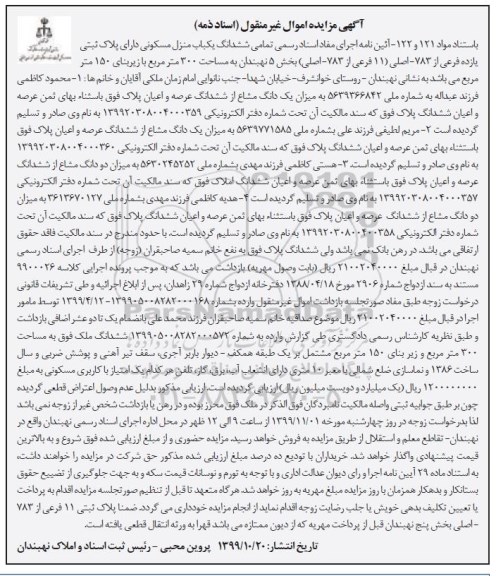 آگهی مزایده اموال غیرمنقول (اسناد ذمه)
باستناد مواد ۱۲۱ و ۱۲۲- آئین نامه اجرای مفاد اسناد رسمی تمامی ششدانگ یکباب منزل مسکونی دارای پلاک ثبتی
یازده فرعی از ۷۸۳-اصلی (۱۱ فرعی از ۷۸۳-اصلی) بخش ۵ نهبندان به مساحت ۳۰۰ متر مربع با زیربنای ۱۵۰ متر
مربع می باشد به نشانی نهبندان - روستای خوانشرف- خیابان شهدا- جنب نانوایی امام زمان ملکی آقایان و خانم ها : ۱-محمود کاظمی
فرزند عبداله به شماره ملی ۵۶۳۹۳۶۶۸۴۲ به میزان یک دانگ مشاع از ششدانگ عرصه و اعیان پلاک فوق باستثناء بهای ثمن عرصه
و اعیان ششدانگ پلاک فوق که سند مالکیت آن تحت شماره دفتر الکترونیکی ۱۳۹۹۲۰۳۰۸۰۰۴۰۰۰۳۵۹ به نام وی صادر و تسلیم
گردیده است ۲- مریم لطیفی فرزند علی بشماره ملی ۵۶۳۹۷۷۱۵۸۵ به میزان یک دانگ مشاع از ششدانگ عرصه و اعیان پلاک فوق
باستثناء بهای ثمن عرصه و اعیان ششدانگ پلاک فوق که سند مالکیت آن تحت شماره دفتر الکترونیکی ۱۳۹۹۲۰۳۰۸۰۰۴۰۰۰۳۶۰
به نام وی صادر و تسلیم گردیده است. ۳- هستی کاظمی فرزند مهدی بشماره ملی ۵۶۳۰۲۴۵۲۵۲ به میزان دو دانگ مشاع از ششدانگ
عرصه و اعیان پلاک فوق باستثناء بهای ثمن عرصه و اعیان ششدانگ املاک فوق که سند مالکیت آن تحت شماره دفتر الکترونیکی
۱۳۹۹۲۰۳۰۸۰۰۴۰۰۰۳۵۷ به نام وی صادر و تسلیم گردیده است ۴- هدیه کاظمی فرزند مهدی بشماره ملی ۳۶۱۳۶۷۰۱۲۷ به میزان
دو دانگ مشاع از ششدانگ عرصه و اعیان پلاک فوق باستثناء بهای ثمن عرصه و اعیان ششدانگ پلاک فوق که سند مالکیت آن تحت
شماره دفتر الکترونیکی ۱۳۹۹۲۰۳۰۸۰۰۴۰۰۰۳۵۸ به نام وی صادر و تسلیم گردیده است، با حدود مندرج در سند مالکیت فاقد حقوق
ارتفاقی می باشد. در رهن بانک نمی باشد ولی ششدانگ پلاک فوق به نفع خانم سمیه صاحبقران (زوجه) از طرف اجرای اسناد رسمی
نهبندان در قبال مبلغ ۲۱۰۰۲۰۴۰۰۰۰ ریال (بابت وصول مهریه) بازداشت می باشد که به موجب پرونده اجرایی کلاسه ۹۹۰۰۰۲۶
مستند به سند ازدواج شماره ۲۹۰۶ مورخ ۱۳۸۸/۰۴/۱۸ دفترخانه ازدواج شماره ۲۹ زاهدان، پس از ابلاغ اجرائیه و طی تشریفات قانونی
درخواست زوجه طبق مفاد صورتجلسه بازداشت اموال غیر منقول وارده بشماره ۱۳۹۹۰۵۰۰۸۲۸۲۰۰۰۱۶۸-۱۳۹۹/۴/۱۲ توسط مامور
اجرا در قبال مبلغ ۲۱۰۰۲۰۴۰۰۰۰ ریال موضوع صداقیه خانم سمیه صاحبقران فرزند محمد علی بانضمام یک تا دو عشر اضافی بازداشت
و طبق نظریه کارشناس رسمی دادگستری طی گزارش وارده به شماره ۱۳۹۹۰۵۰۰۸۲۸۲۰۰۰۵۷۲ ششدانگ ملک فوق به مساحت
۳۰۰ متر مربع و زیر بنای ۱۵۰ متر مربع مشتمل بر یک طبقه همکف - دیوار باربر آجری، سقف تیر آهنی و پوشش ضربی و سال
ساخت ۱۳۸۶ و نماسازی ضلع شمالی با معبر ۱۰ متری دارای انشعاب آب، برق، گاز، تلفن هر کدام یک امتیاز با کاربری مسکونی به مبلغ
۱۲۰۰۰۰۰۰۰۰ ریال (یک میلیارد و دویست میلیون ریال) ارزیابی گردیده است. ارزیابی مذکور بدلیل عدم وصول اعتراض قطعی گردیده
چون بر طبق جوابیه ثبتی واصله مالکیت نامبردگان فوق الذکر در ملک فوق محرز بوده و در رهن یا بازداشت شخص غیر از زوجه نمی باشد
لذا بدرخواست زوجه در روز چهارشنبه مورخه ۱۳۹۹/۱۱/۰۱ از ساعت ۹ الی ۱۲ ظهر در محل اداره اجرای اسناد رسمی نهبندان واقع در
نهبندان- تقاطع معلم و استقلال از طریق مزایده به فروش خواهد رسید. مزایده حضوری و از مبلغ ارزیابی شده فوق شروع و به بالاترین
قیمت پیشنهادی واگذار خواهد شد. خریداران با تودیع ده درصد مبلغ ارزیابی شده مذکور حق شرکت در مزایده را خواهند داشت،
به استناد ماده ۲۹ آیین نامه اجرا و رای دیوان عدالت اداری و با توجه به تورم و نوسانات قیمت سکه و به جهت جلوگیری از تضییع حقوق
بستانکار و بدهکار همزمان با روز مزایده مبلغ مهریه به روز خواهد شد. هرگاه متعهد تا قبل از تنظیم صورتجلسه مزایده اقدام به پرداخت
یا تعیین تکلیف بدهی خویش یا جلب رضایت زوجه اقدام نماید از انجام مزایده خودداری می گردد. ضمنا پلاک ثبتی ۱۱ فرعی از ۷۸۳
-اصلی بخش پنج نهبندان قبل از پرداخت مهریه که از دیون ممتازه می باشد قهرا به ورثه انتقال قطعی یافته است.
تاریخ انتشار: ۱۳۹۹/۱۰/۲۰ پروین محبی - رئیس ثبت اسناد و املاک نهبندان